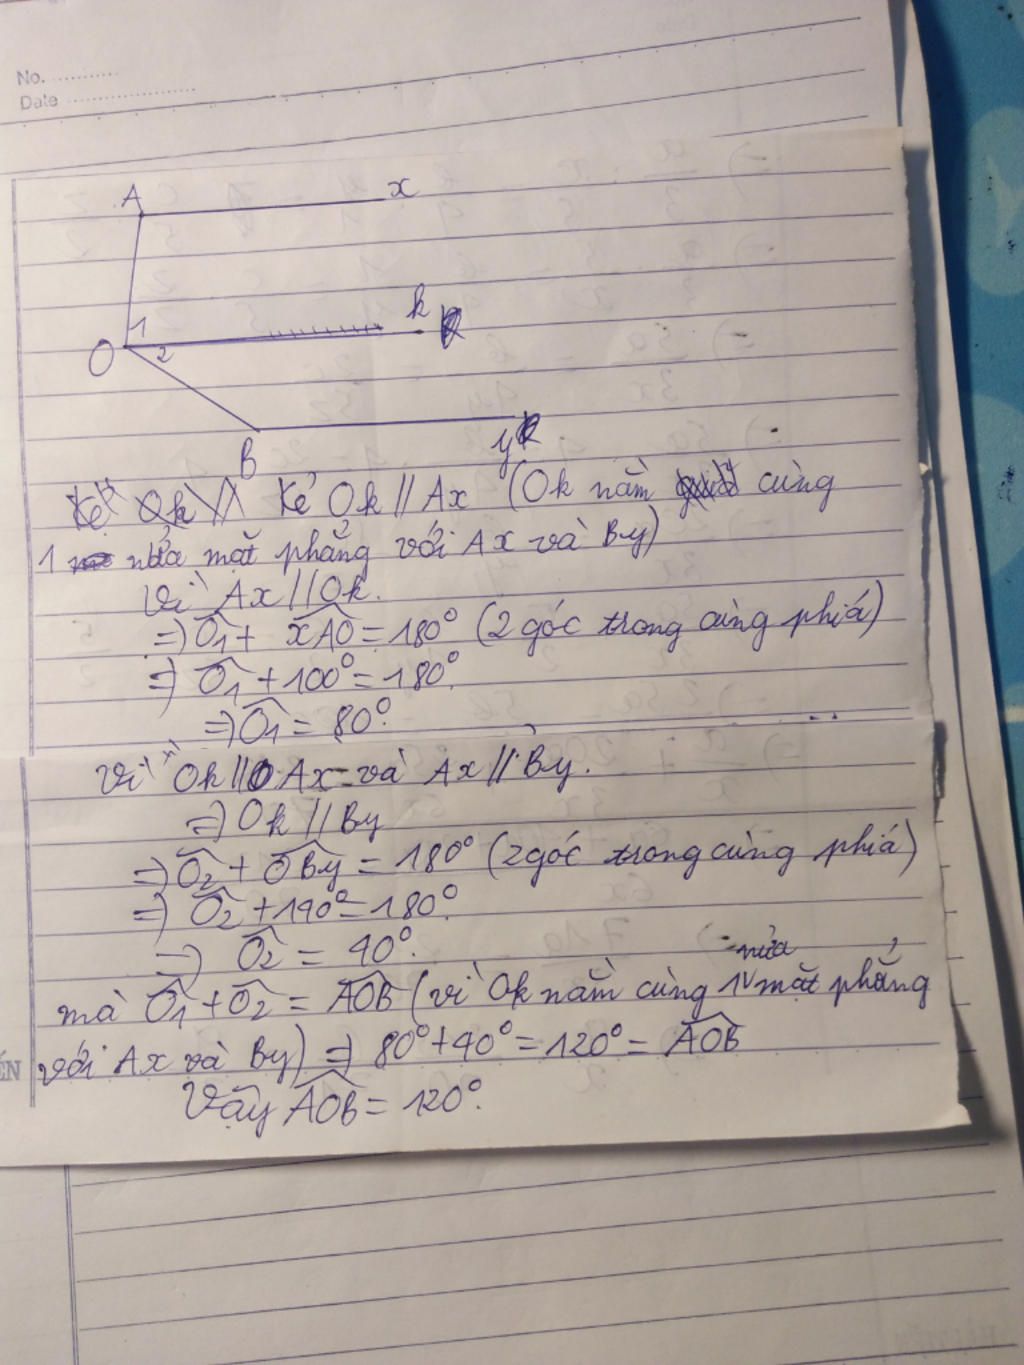 No.
Date
A x
1 k
O 2
B y
Kẻ Ok // Kẻ Ok // Ax (Ok nằm cùng
1 nửa mặt phẳng với Ax và By)
Vì Ax // Ok.
=) Ô1 + xAO = 180° (2 góc trong cùng phía)
=) Ô1 + 100° = 180°.
=) Ô1 = 80°.
Vì Ok // Ax và Ax // By.
=) Ok // By
=) Ô2 + OBy = 180° (2 góc trong cùng phía)
=) Ô2 + 140° = 180°.
=) Ô2 = 40°.
mà Ô1 + Ô2 = AOB (vì Ok nằm cùng 1 nửa mặt phẳng
với Ax và By) =) 80° + 40° = 120° = AOB
Vậy AOB = 120°.